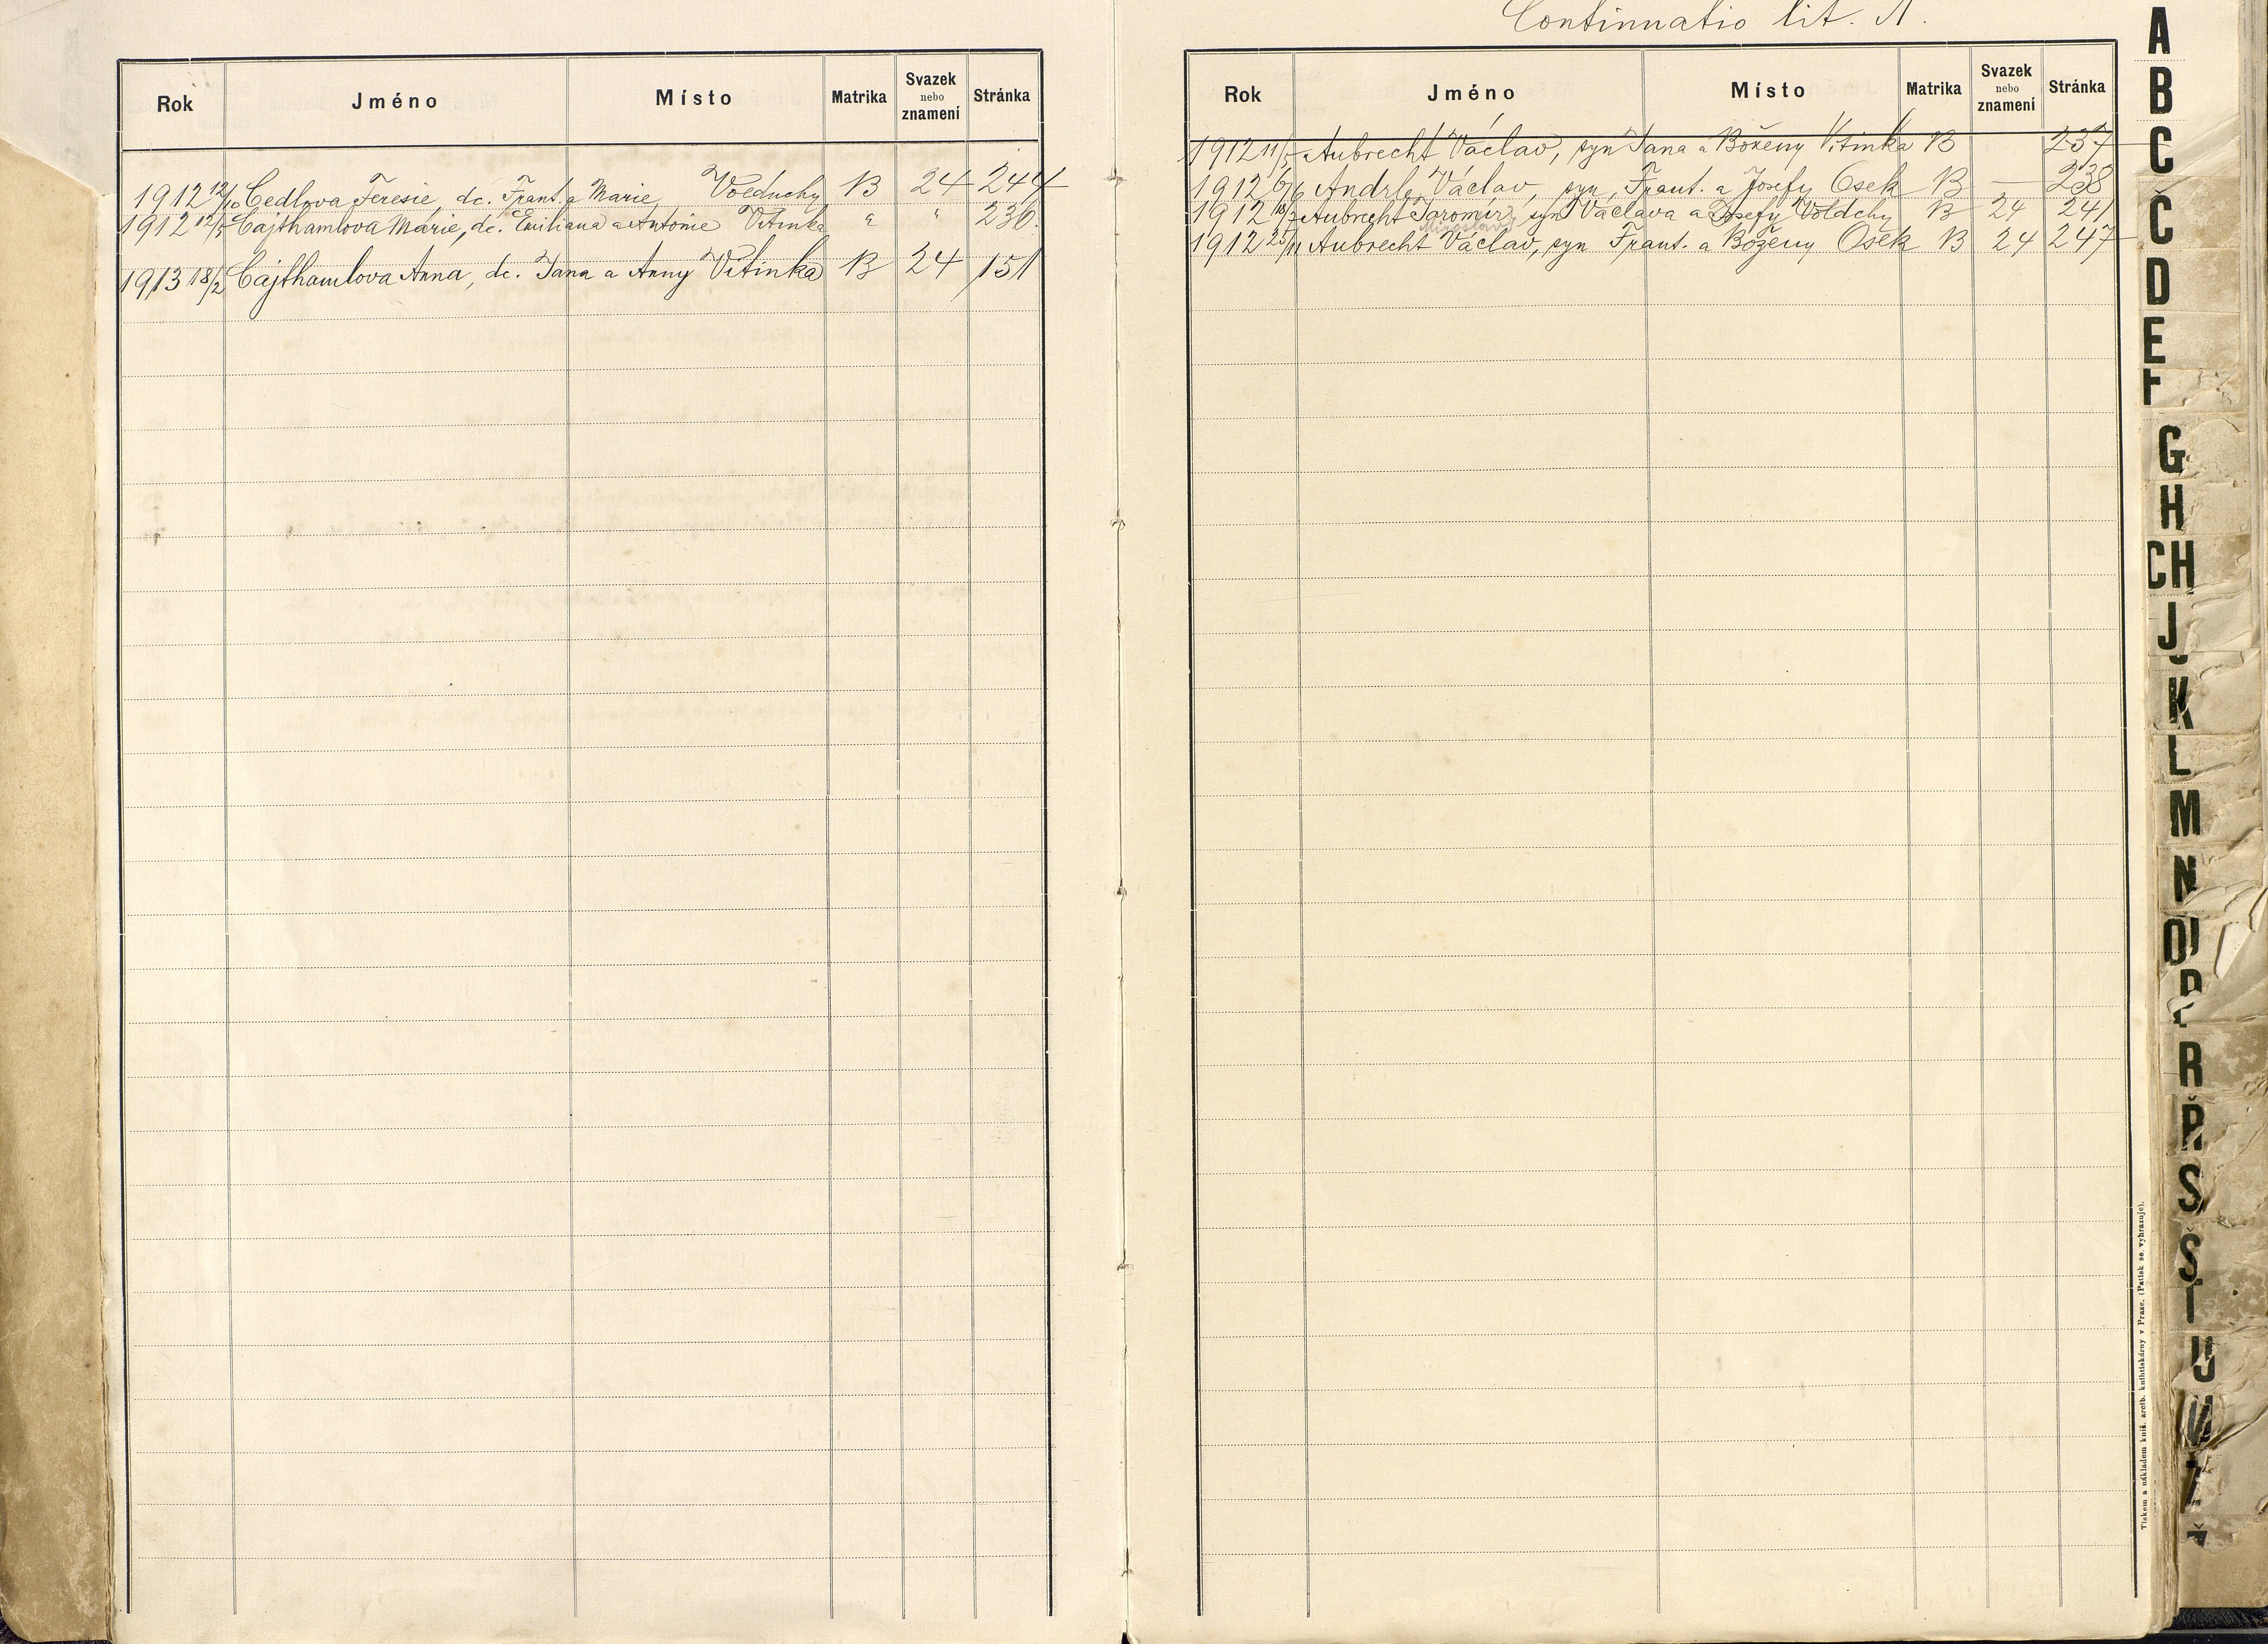 Rok Jméno Místo Matrika Svazek nebo znamení Stránka
1912 12/10 Cedlova Teresie, dc. Frant. a Marie Volduchy B 24 244
1912 12/5 Cajthamlova Marie, dc. Emiliana a Antonie Vitinka " " 236.
1913 18/2 Cajthamlova Anna, dc. Jana a Anny Vitinka B 24 151
Continuatio lit. A.
Rok Jméno Místo Matrika Svazek nebo znamení Stránka
1912 11/5 Aubrecht Václav, syn Jana a Boženy Vitinka B 237
1912 6/6 Andrle Václav, syn Frant. a Josefy Osek B — 238
1912 18/7 Aubrecht Jaromír, syn Václava a Josefy Voldchy B 24 241
Miroslav
1912 25/11 Aubrecht Václav, syn Frant. a Boženy Osek B 24 247
A
B
C
Č
D
E
F
G
H
CH
J
K
L
M
N
O
P
R
Ř
S
Š
T
U
V
Z
Ž
Tiskem a nákladem kníž. arcib. knihtiskárny v Praze. (Patisk se vyhrazuje).